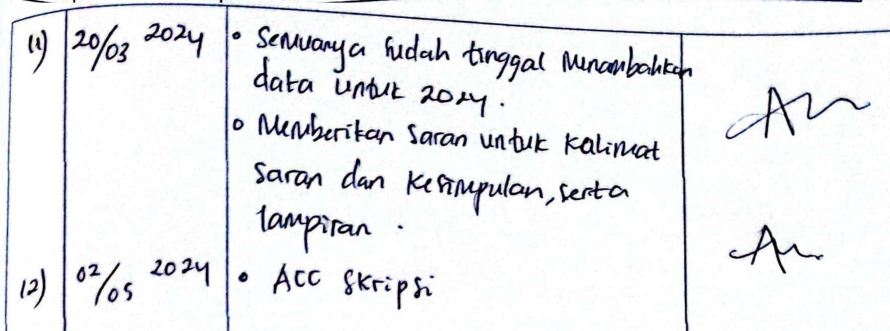 11) 20/03 2024 • Semuanya sudah tinggal menambahkan
data untuk 2024.
• Memberikan saran untuk kalimat
saran dan kesimpulan, serta
lampiran.
12) 02/05 2024 • ACC Skripsi